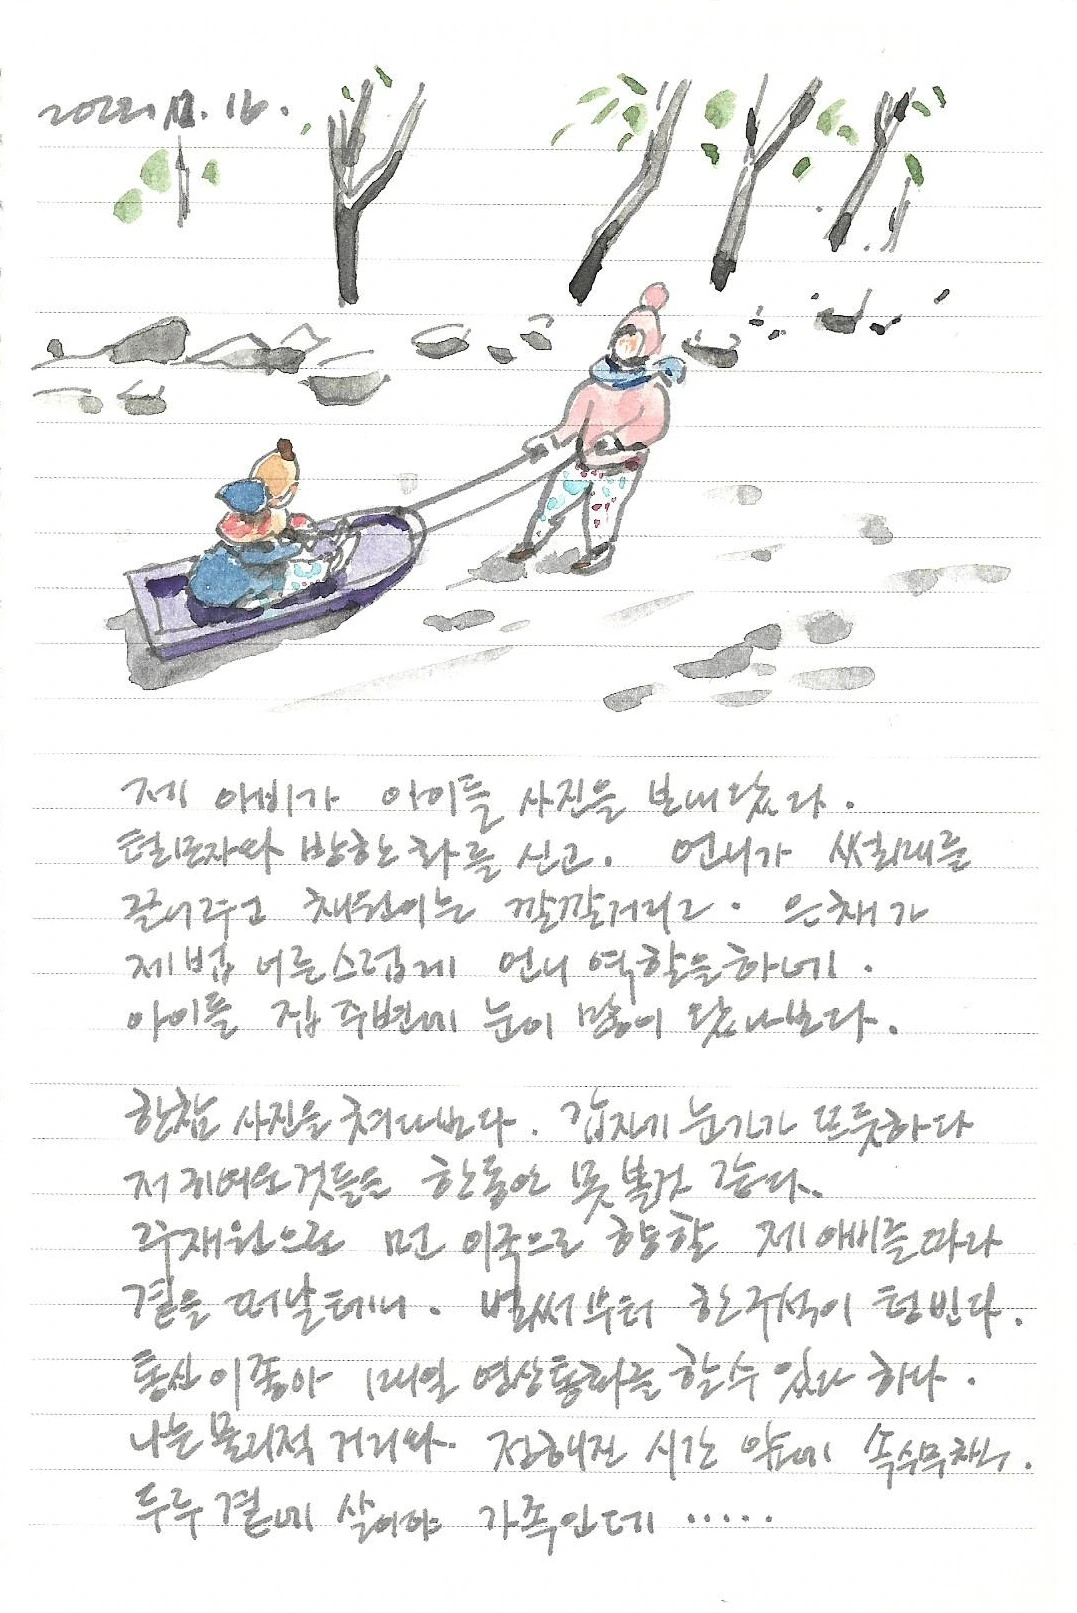 2022. 12. 16.
제 아비가 아이들 사진을 보내왔다.
털모자와 방한화를 신고. 언니가 썰매를
끌어주고 채원이는 깔깔거리고. 은채가
제법 어른스럽게 언니 역할을 하네.
아이들 집 주변에 눈이 많이 왔나보다.
한참 사진을 쳐다본다. 갑자기 눈가가 뜨듯하다
저 귀여운것들을 한동안 못 볼것 같다.
주재원으로 먼 이국으로 향할 제 아비를 따라
곁을 떠날테니. 벌써부터 한구석이 텅빈다.
통신이 좋아 매일 영상통화를 할수 있다 하나.
나는 물리적 거리와. 정해진 시간 앞에 속수무책.
두루 곁에 살아야 가족인데 .....